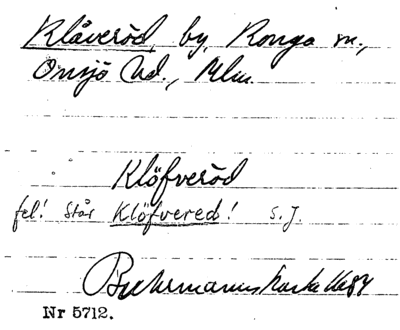 Klåveröd, by, Konga sn.,
Onsjö hd., Mlm.
Klöfveröd
fel! Står Klöfvered! S.J.
Buhrmanns karta 1684
Nr 5712.